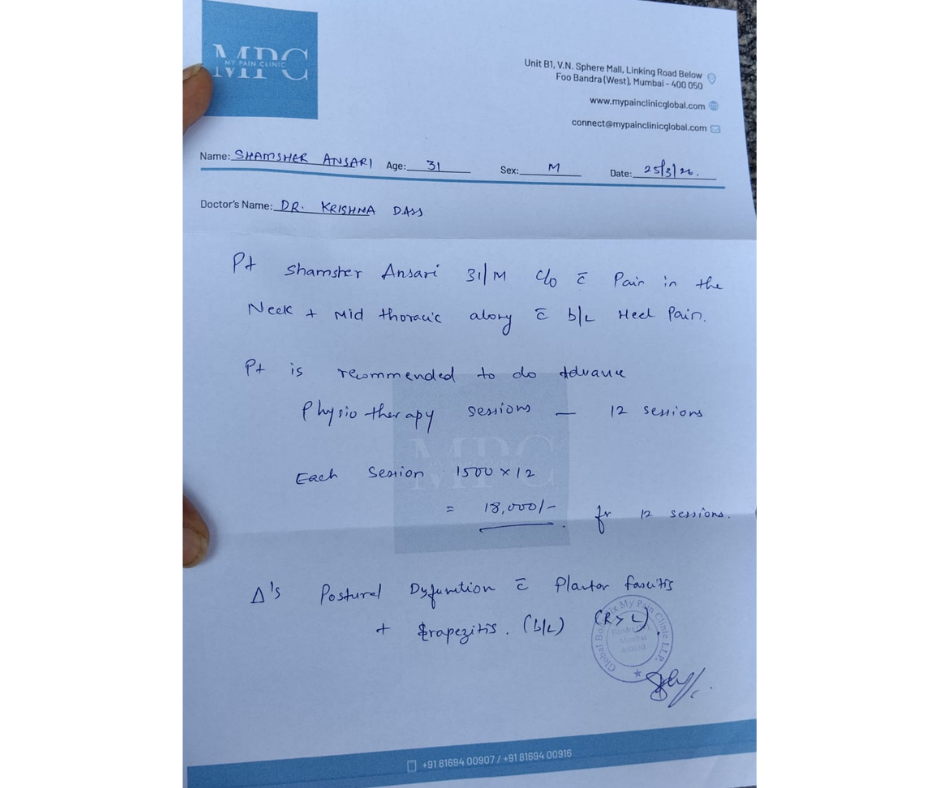 MPC
MY PAIN CLINIC
Unit B1, V.N. Sphere Mall, Linking Road Below
Foo Bandra (West), Mumbai - 400 050
www.mypainclinicglobal.com
connect@mypainclinicglobal.com
Name: SHAMSHER ANSARI Age: 31 Sex: M Date: 25/3/26.
Doctor's Name: DR. KRISHNA DASS
Pt Shamsher Ansari 31/M C/o c̄ Pain in the
Neck + Mid thoracic along c̄ b/L Heel Pain.
Pt is recommended to do Advance
Physiotherapy sessions — 12 sessions
Each Session 1500 x 12
= 18,000/- fr 12 sessions.
Δ's Postural Dysfunction c̄ Plantar fascitis
+ trapezitis. (b/L) (R > L)
MPC
My Pain Clinic LLP.
+91 81694 00907 / +91 81694 00916